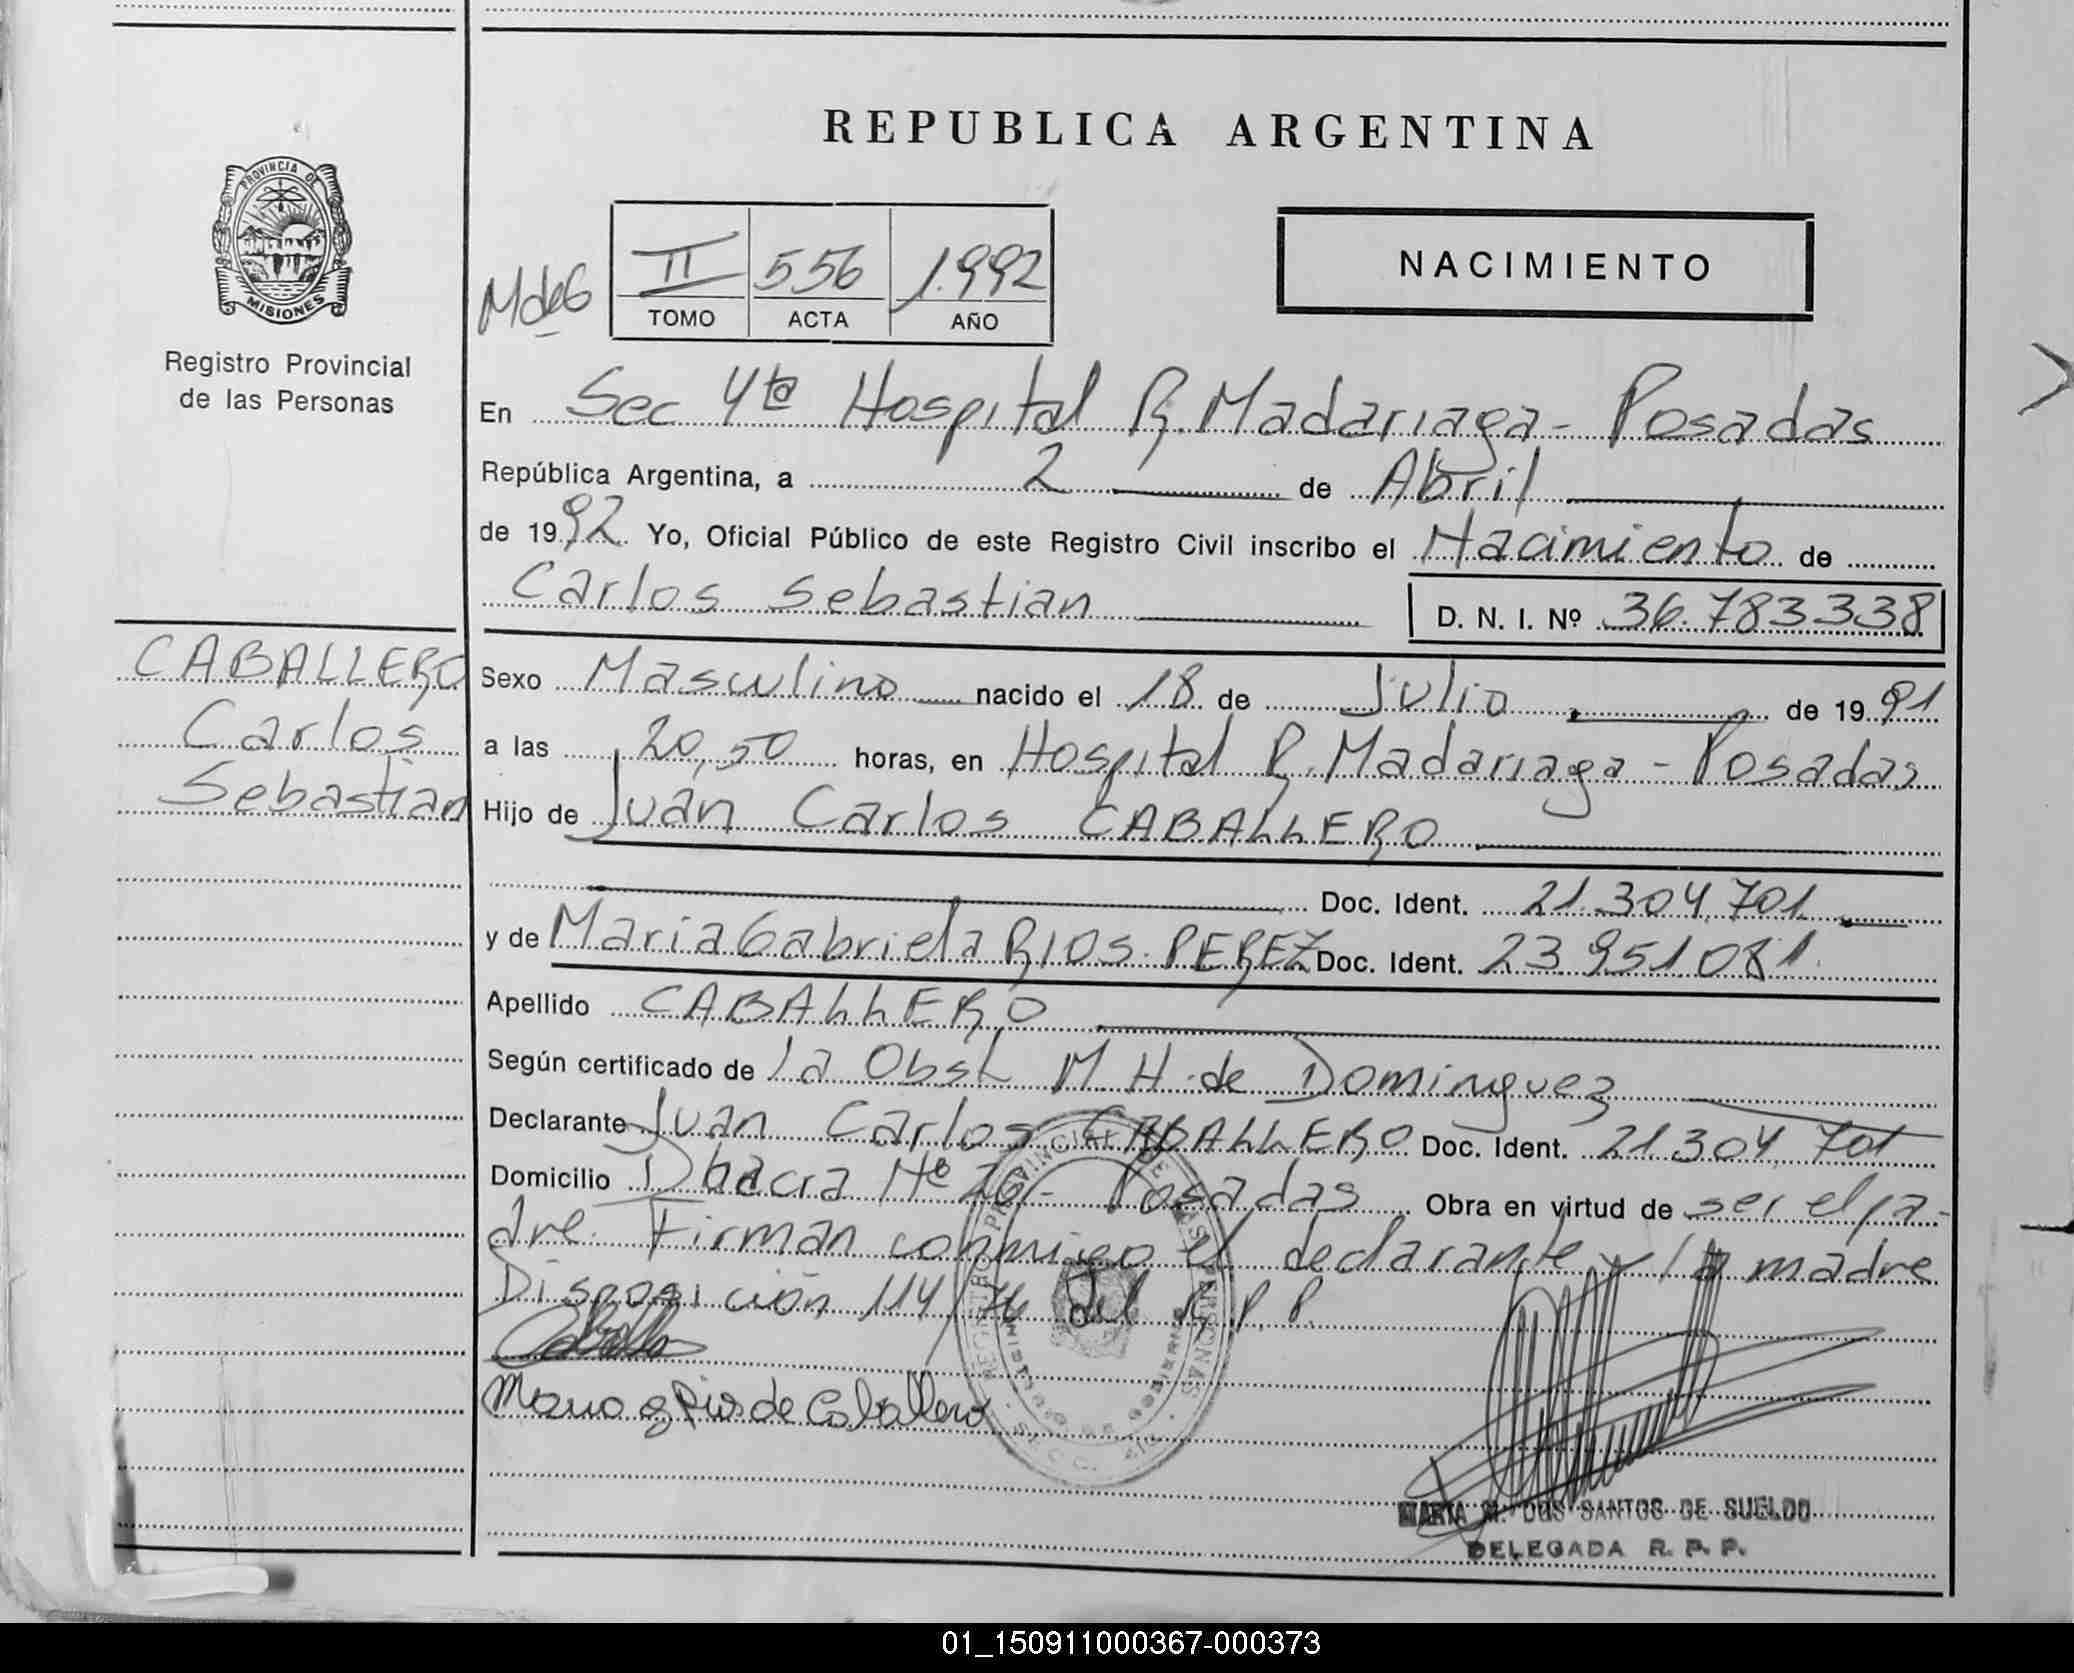 REPUBLICA ARGENTINA
PROVINCIA DE
MISIONES
Registro Provincial
de las Personas
MdeG
II 556 1.992
TOMO ACTA AÑO
NACIMIENTO
En Sec 4ta Hospital R. Madariaga - Posadas
República Argentina, a 2 de Abril
de 1992 Yo, Oficial Público de este Registro Civil inscribo el Nacimiento de
Carlos Sebastian D. N. I. Nº 36.783.338
CABALLERO
Carlos
Sebastian
Sexo Masculino nacido el 18 de Julio de 1991
a las 20,50 horas, en Hospital R. Madariaga - Posadas
Hijo de Juan Carlos CABALLERO
Doc. Ident. 21.304.701.
y de Maria Gabriela RIOS PEREZ Doc. Ident. 23.951.081.
Apellido CABALLERO
Según certificado de la Obst M. H. de Dominguez
Declarante Juan Carlos CABALLERO Doc. Ident. 21.304.701
Domicilio Nº 26 - Posadas Obra en virtud de ser el pa-
dre. Firman conmigo el declarante y la madre
Disposición 114/76 del R. P. P.
REGISTRO PROVINCIAL DE LAS PERSONAS
MINISTERIO DE GOBIERNO
de Caballero
MARTA M. DOS SANTOS DE SUELDO
DELEGADA R. P. P.
01_150911000367-000373